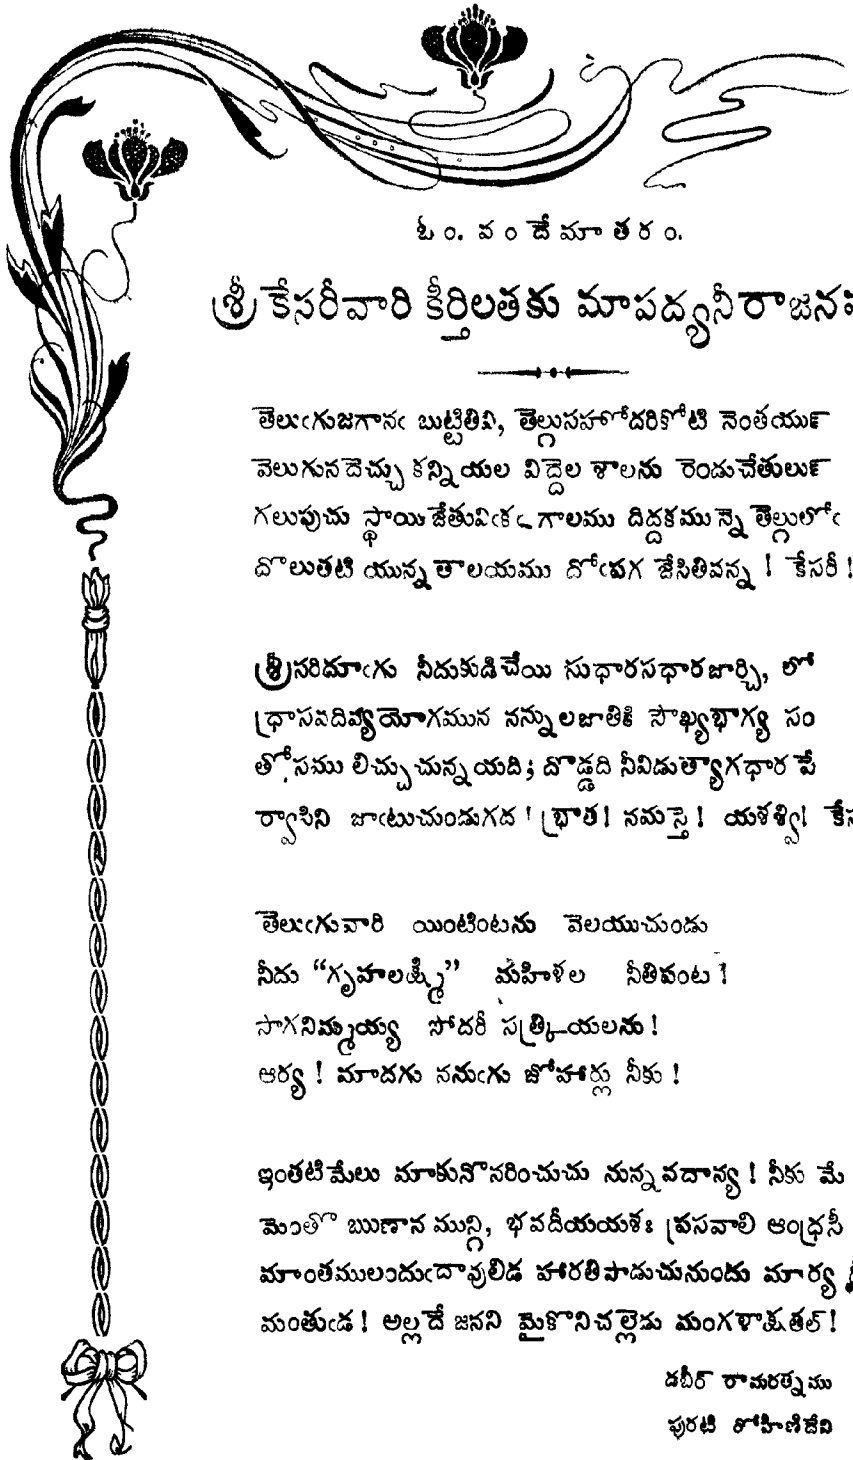 ఓం. వందేమాతరం.
శ్రీ కేసరీవారి కీర్తిలతకు మాపద్యనీరాజనం
తెలుఁగుజగానఁ బుట్టితివి, తెల్గుసహోదరికోటి నెంతయున్
వెలుగునదెచ్చు కన్నియల విద్దెల శాలను రెండుచేతులున్
గలుపుచు స్థాయిజేతువిఁకఁ గాలము దిద్దకమున్నె తెల్గులోఁ
దొలుతటి యున్నతాలయము దోఁపగ జేసితివన్న ! కేసరీ !
శ్రీసరిదూఁగు నీదుకుడిచేయి సుధారసధారజార్చి, లో
ధ్రాసవదివ్యయోగమున నన్నులజాతికి సౌఖ్యభాగ్య సం
తోసము లిచ్చుచున్నయది; దొడ్డది నీవిడుత్యాగధార పే
ర్వాసిని జాఁటుచుండుగద ! భ్రాత! నమస్తె! యశశ్వి!
తెలుఁగువారి యింటింటను వెలయుచుండు
నీదు “గృహలక్ష్మి” మహిళల నీతివంట !
సాగనిమ్మయ్య సోదరీ సత్క్రియలను !
ఆర్య ! మాదగు ననుఁగు జోహార్లు నీకు !
ఇంతటిమేలు మాకునొనరించుచు నున్నవదాన్య ! నీకు మే
మెంతొ ఋణాన మున్గి, భవదీయయశః ప్రసవాలి ఆంధ్రసీ
మాంతములందుఁదావులిడ హారతిపాడుచునుందు మార్య
మంతుఁడ ! అల్లదే జనని మైకొనిచల్లెడు మంగళాక్షతల్ !
డబీర్ రామరత్నము
పురటి రోహిణిదేవి